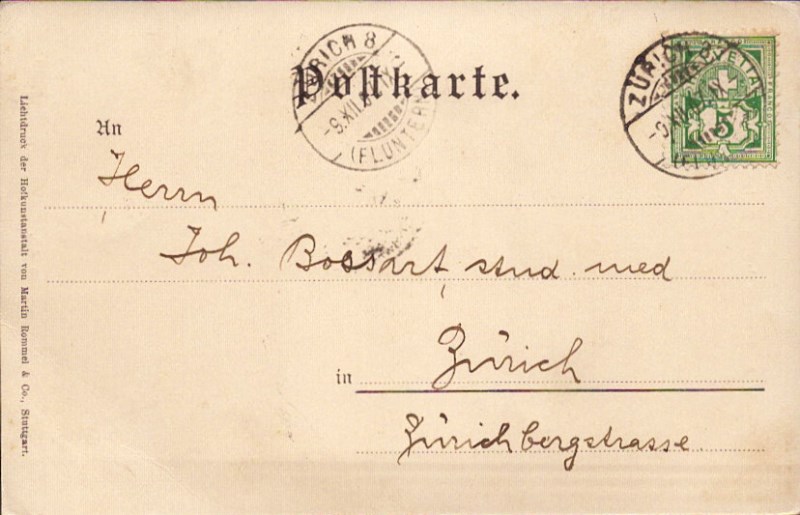 Postkarte.
ZÜRICH 8
-9.XII.
(FLUNTERN)
ZÜRICH 8
-9.XII.
HELVETIA
5
An
Herrn
Joh. Bossart, stud. med
in Zürich
Zürichbergstrasse
Lichtdruck der Hofkunstanstalt von Martin Rommel & Co., Stuttgart.